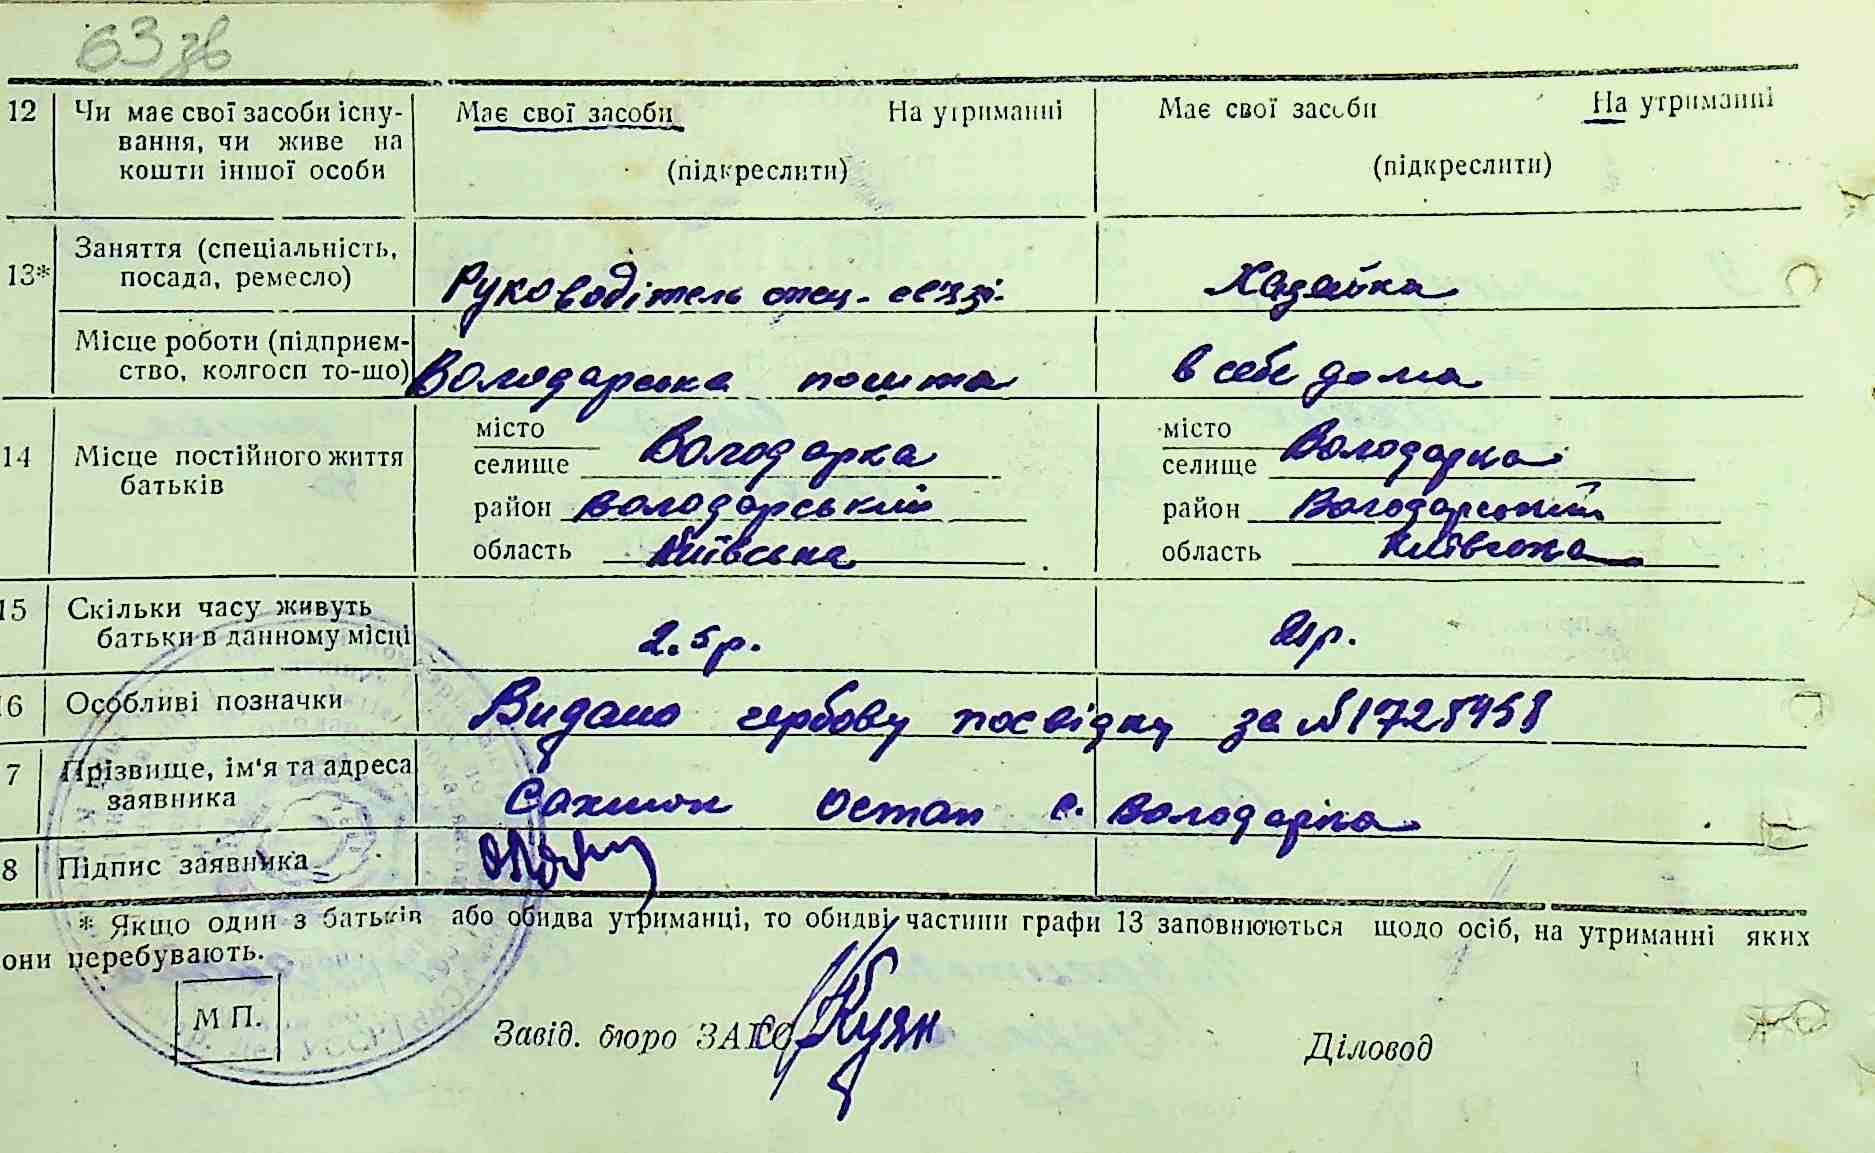 63 зв
12 Чи має свої засоби існу- Має свої засоби На утриманні Має свої засоби На утриманні
вання, чи живе на
кошти іншої особи (підкреслити) (підкреслити)
13* Заняття (спеціальність,
посада, ремесло) Руководітель спец- св'язі. Хазяйка
Місце роботи (підприєм-
ство, колгосп то-що) Володарська пошта в себе дома
14 Місце постійного життя місто Володарка місто Володарка
батьків селище селище
район Володарський район Володарський
область Київська область Київська
15 Скільки часу живуть
батьки в данному місці 2.5 р. р.
6 Особливі позначки Видано гербову посвідку за № 1728458
7 Прізвище, ім'я та адреса
заявника Остап с. Володарка
8 Підпис заявника
* Якщо один з батьків або обидва утриманці, то обидві частини графи 13 заповнюються щодо осіб, на утриманні яких
они перебувають.
М П.
Завід. бюро ЗАГС Діловод